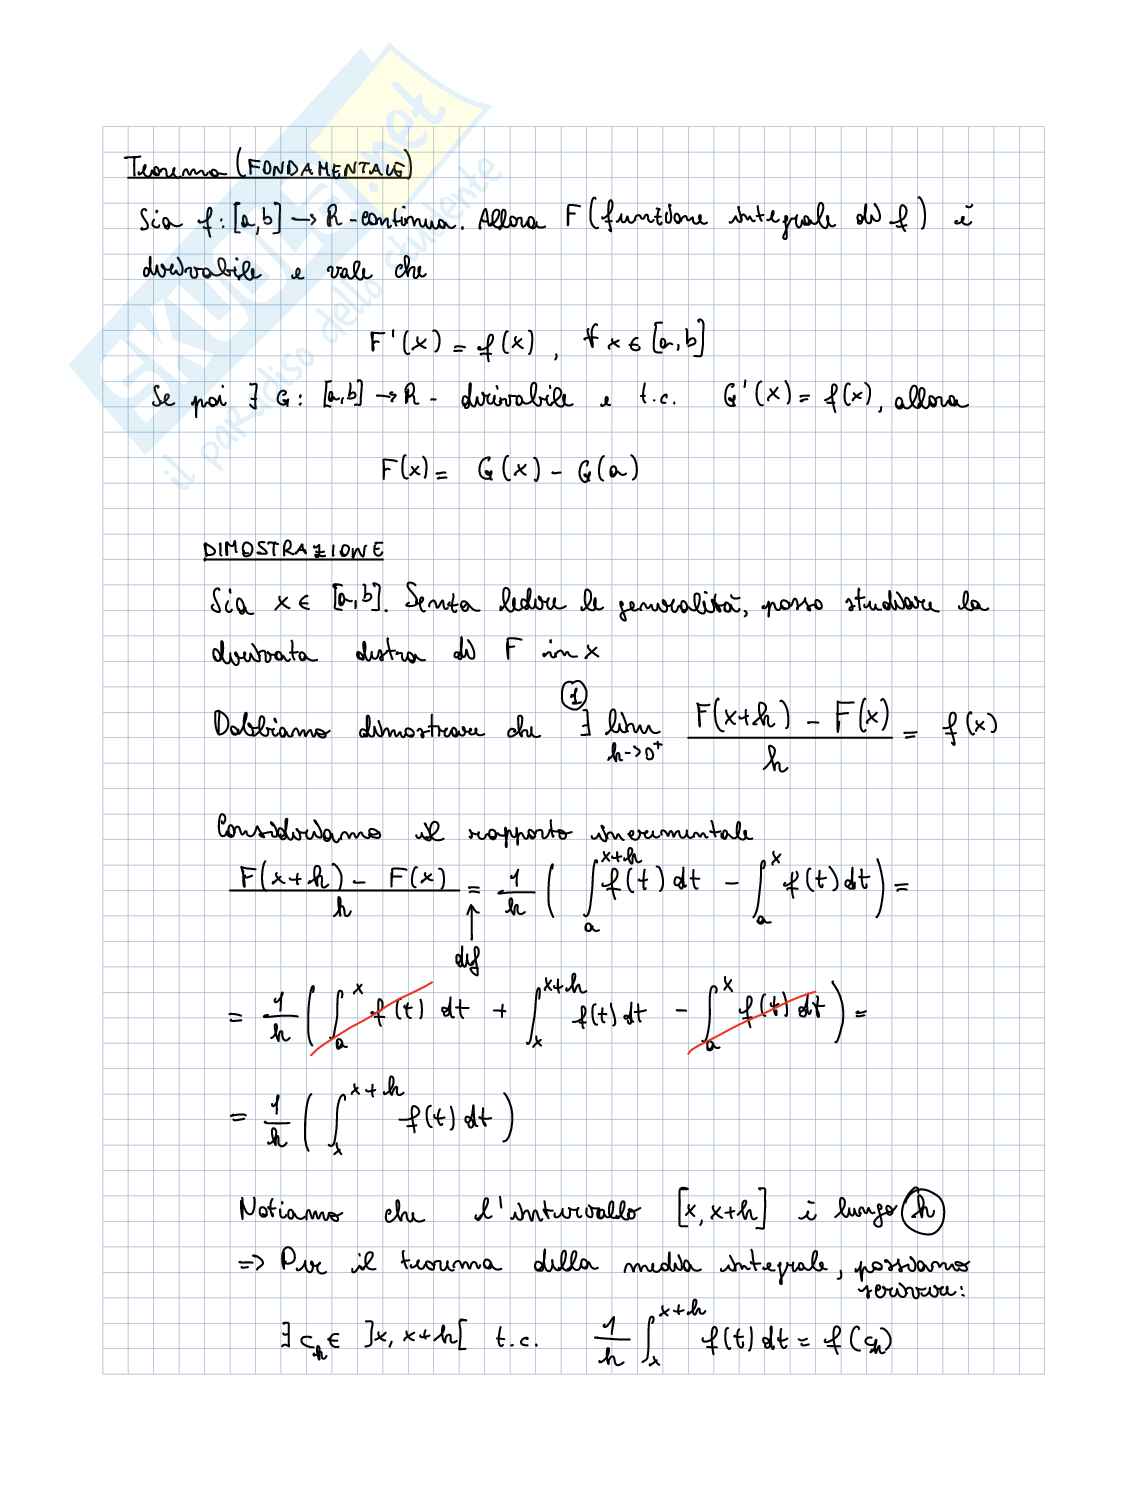 Teorema (FONDAMENTALE)
Sia f: [a,b] → R - continua. Allora F (funzione integrale di f) è
derivabile e vale che
F'(x) = f(x), ∀ x ∈ [a,b]
Se poi ∃ G: [a,b] → R - derivabile e t.c. G'(x) = f(x), allora
F(x) = G(x) - G(a)
DIMOSTRAZIONE
Sia x ∈ [a,b]. Senza ledere le generalità, posso studiare la
derivata destra di F in x
Dobbiamo dimostrare che ① ∃ lim_{h→0⁺} (F(x+h) - F(x))/h = f(x)
Consideriamo il rapporto incrementale
(F(x+h) - F(x))/h = 1/h ( ∫_a^{x+h} f(t) dt - ∫_a^x f(t) dt ) =
↑
def
= 1/h ( ∫_a^x f(t) dt + ∫_x^{x+h} f(t) dt - ∫_a^x f(t) dt ) =
= 1/h ( ∫_x^{x+h} f(t) dt )
Notiamo che l'intervallo [x, x+h] è lungo h
=> Per il teorema della media integrale, possiamo
scrivere:
∃ c_h ∈ ]x, x+h[ t.c. 1/h ∫_x^{x+h} f(t) dt = f(c_h)
SKUOLA.net
il paradiso dello studente